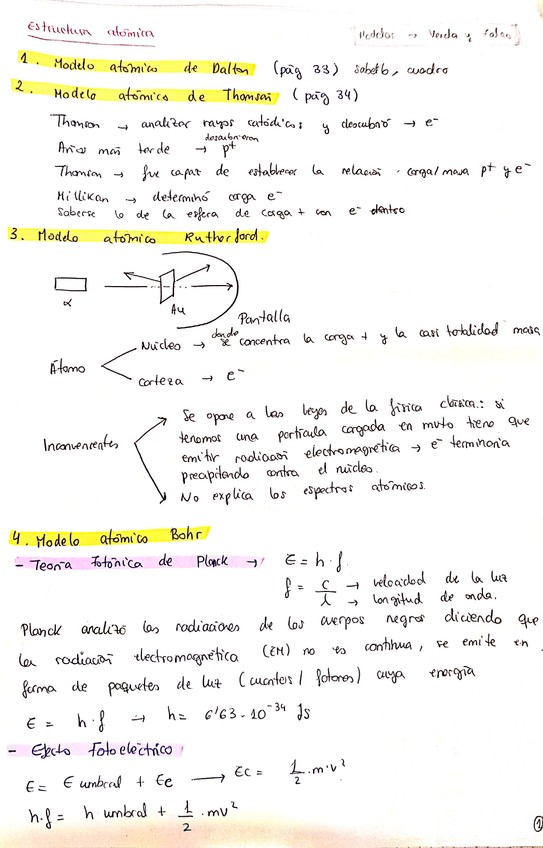 Estructura atómica
[Modelos → Verda y falso]
1. Modelo atómico de Dalton (pág 33) sabérlo, cuadro
2. Modelo atómico de Thomson (pág 34)
Thomson → analizar rayos catódicos y descubrió → e⁻
Años más tarde → descubrieron p⁺
Thomson → fue capaz de establecer la relación carga/masa p⁺ y e⁻
Millikan → determinó carga e⁻
Saberse lo de la esfera de carga + con e⁻ dentro
3. Modelo atómico Rutherford.
α
Au
Pantalla
Átomo
Núcleo → donde se concentra la carga + y la casi totalidad masa
corteza → e⁻
Inconvenientes
Se opone a las leyes de la física clásica: si
tenemos una partícula cargada en mvto tiene que
emitir radiación electromagnética → e⁻ terminaría
precipitando contra el núcleo.
No explica los espectros atómicos.
4. Modelo atómico Bohr
- Teoría fotónica de Planck → E = h · f
f = c/λ → velocidad de la luz
→ longitud de onda.
Planck analizó las radiaciones de los cuerpos negros diciendo que
la radiación electromagnética (EM) no es continua, se emite en
forma de paquetes de luz (cuantos / fotones) cuya energía
E = h · f → h = 6'63 · 10⁻³⁴ Js
- Efecto Fotoeléctrico
E = E umbral + Ec → Ec = 1/2 · m · v²
h · f = h umbral + 1/2 · mv²
1